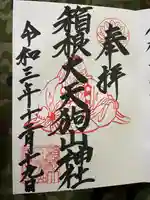 奉拝
箱根大天狗山神社
令和三年十一月十九日